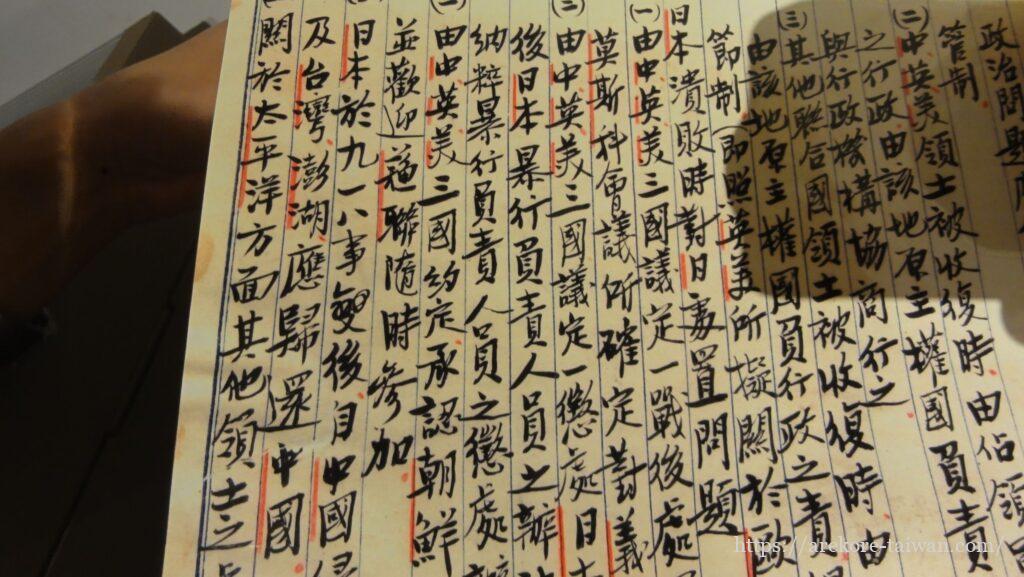 政治問題應
管制
(二)中英美領土被收復時由佔領
之行政由該地原主權國負責
與行政機構協商行之
(三)其他聯合國領土被收復時由
由該地原主權國負行政之責
節制(即照英美所擬關於歐
日本潰敗時對日處置問題
(一)由中英美三國議定一戰後處
莫斯科會議所確定對義
(二)由中英美三國議定一懲處日本
後日本暴行負責人員之辦法
納粹暴行負責人員之懲處辦
(二)由中英美三國約定承認朝鮮
並歡迎蘇聯隨時參加
日本於九一八事變後自中國侵
及台灣澎湖應歸還中國
關於太平洋方面其他領土之
https://arekore-taiwan.com/